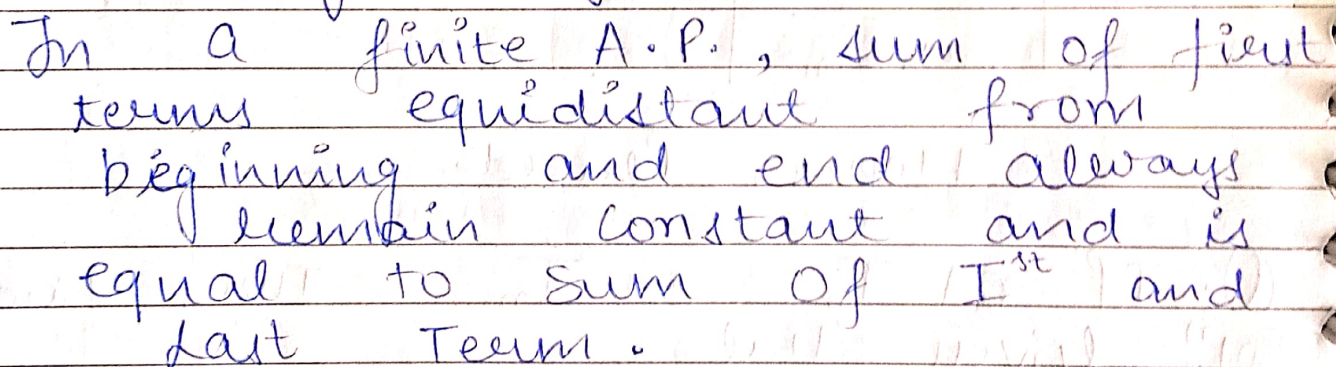 In a finite A.P., sum of first
terms equidistant from
beginning and end always
remain constant and is
equal to sum of Ist and
Last Term.